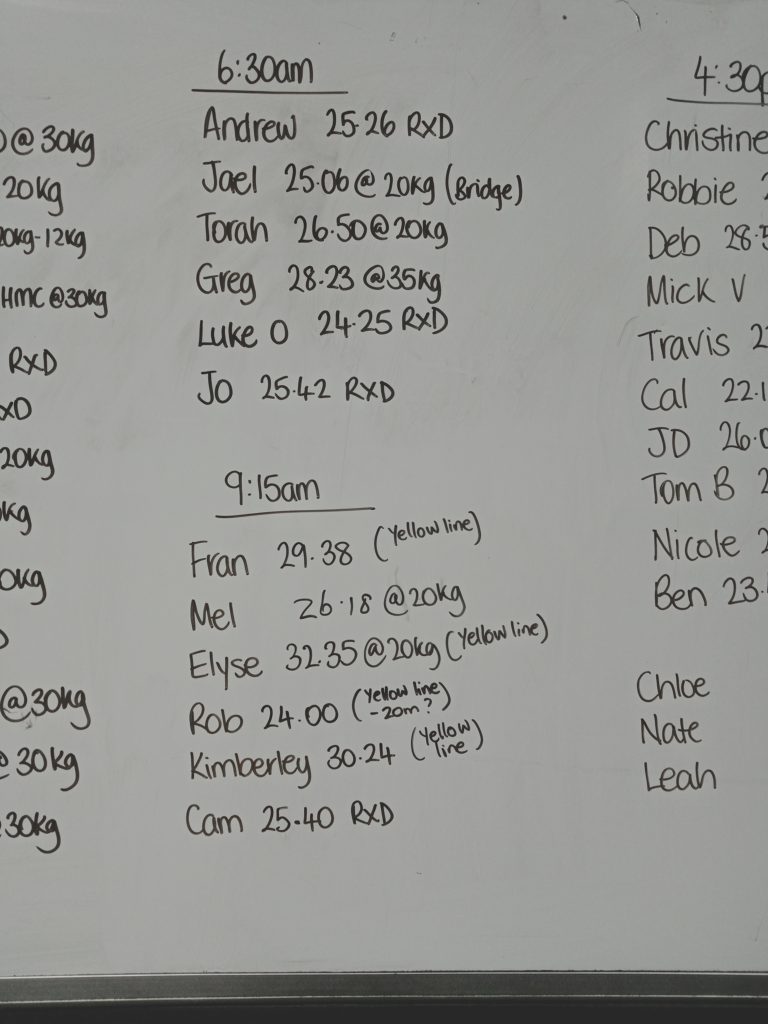 @30kg
20kg
-12kg
HMC @30kg
RXD
20kg
kg
@30kg
30kg
30kg
6:30am
Andrew 25.26 RXD
Jael 25.06 @ 20kg (Bridge)
Torah 26.50 @ 20kg
Greg 28.23 @35kg
Luke O 24.25 RXD
Jo 25.42 RXD
9:15am
Fran 29.38 (Yellow line)
Mel 26.18 @20kg
Elyse 32.35 @20kg (Yellow line)
Rob 24.00 (Yellow line
-20m?)
Kimberley 30.24 (Yellow
line)
Cam 25.40 RXD
4:30p
Christine
Robbie
Deb 28.
Mick V
Travis
Cal 22.1
JD 26.
Tom B
Nicole
Ben 23.
Chloe
Nate
Leah